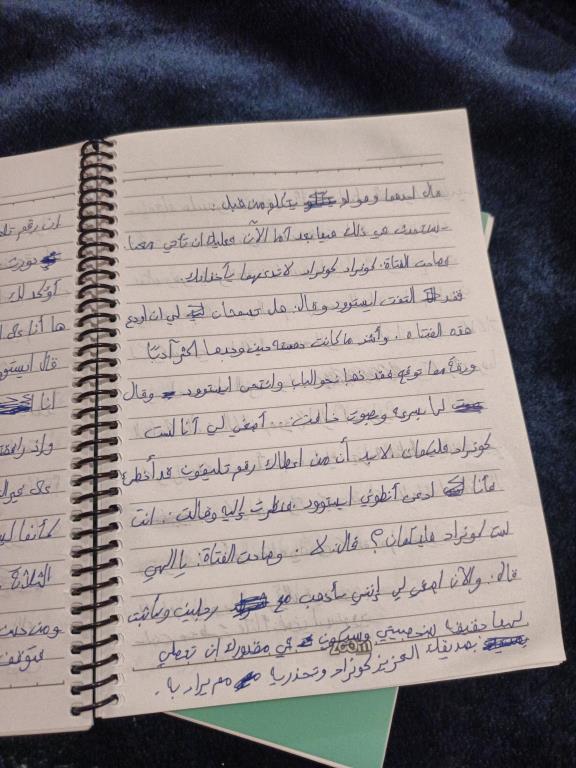 قال أحدهما وهو لم يتكلم من قبل:
- سنتحدث في ذلك فيما بعد أما الآن فعليك أن تأتي معنا.
وصاحت الفتاة: كونراد كونراد لا تدعهما يأخذانك.
فقد التفت ايستوود وقال: هل تسمحان لي ان اودع
هذه الفتاة. وأشد ما كانت دهشته حين وجدهما أكثر أدبًا
ورقةً مما توقع فقد ذهبا نحو الباب وانتحى ايستوود وقال
لها بسرعة وبصوت خافت: أصغي لي أنا لست
كونراد فليكمان لابد أن من اعطاك رقم تليفون قد أخطئ
فأنا ادعى أنطوني ايستوود فنظرت إليه وقالت: انت
لست كونراد فليكمان؟ قال: لا. وصاحت الفتاة: يا إلهي
قال: والآن اصغي لي إنني سأذهب مع رجلين وسأثبت
لهما حقيقة شخصيتي وسيكون في مقدورك ان تتصلي
بصديقك العزيز كونراد وتحذريه مم يراد به.
ان رقم
أؤكد لك
ها أنا
قال ايستوود
انا
الثلاثة
zoom